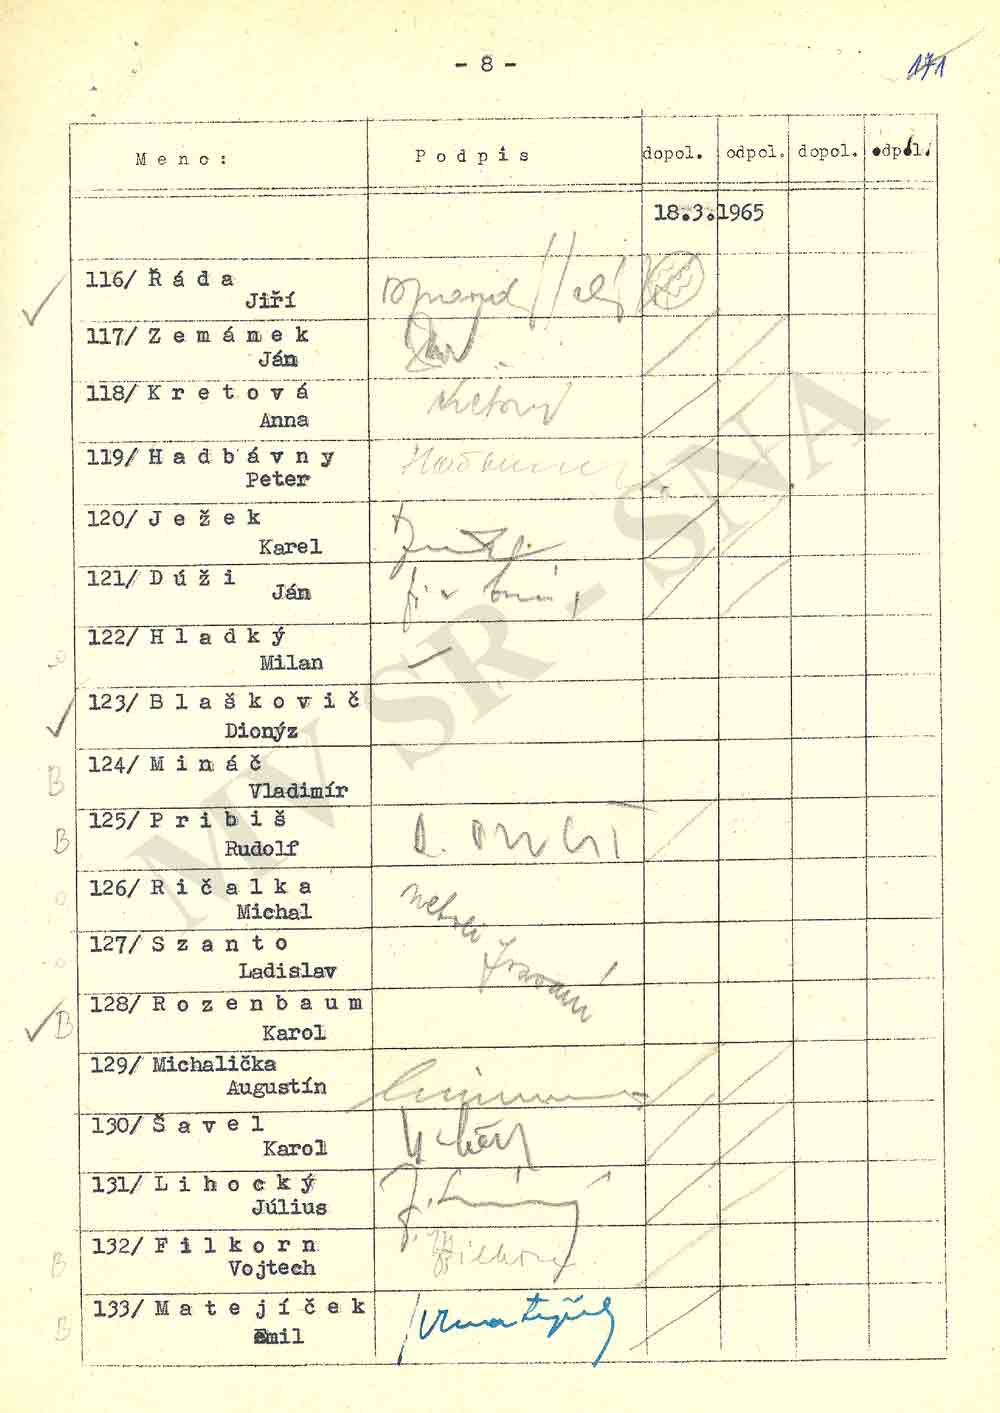 - 8 -
171
Meno: Podpis dopol. odpol. dopol. odpol.
18.3.1965
116/ Řáda
Jiří
117/ Zemánek
Ján
118/ Kretová
Anna
Kretová
119/ Hadbávny
Peter
120/ Ježek
Karel
121/ Dúži
Ján
122/ Hladký
Milan
123/ Blaškovič
Dionýz
124/ Mináč
B
Vladimír
125/ Pribiš
B
Rudolf
126/ Ričalka
Michal
127/ Szanto
Ladislav
128/ Rozenbaum
B
Karol
129/ Michalička
Augustín
130/ Šavel
Karol
131/ Lihocký
Július
132/ Filkorn
B
Vojtech
133/ Matejíček
B
Emil
MV SR - SNA